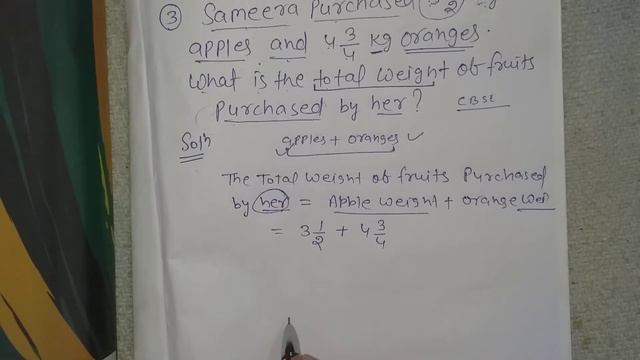 ③ Sameera Purchased
apples and 4 3/4 kg oranges.
What is the total weight of fruits
Purchased by her? CBSE
Soln apples + oranges ✓
The Total weight of fruits Purchased
by her = Apple weight + orange wei
= 3 1/2 + 4 3/4